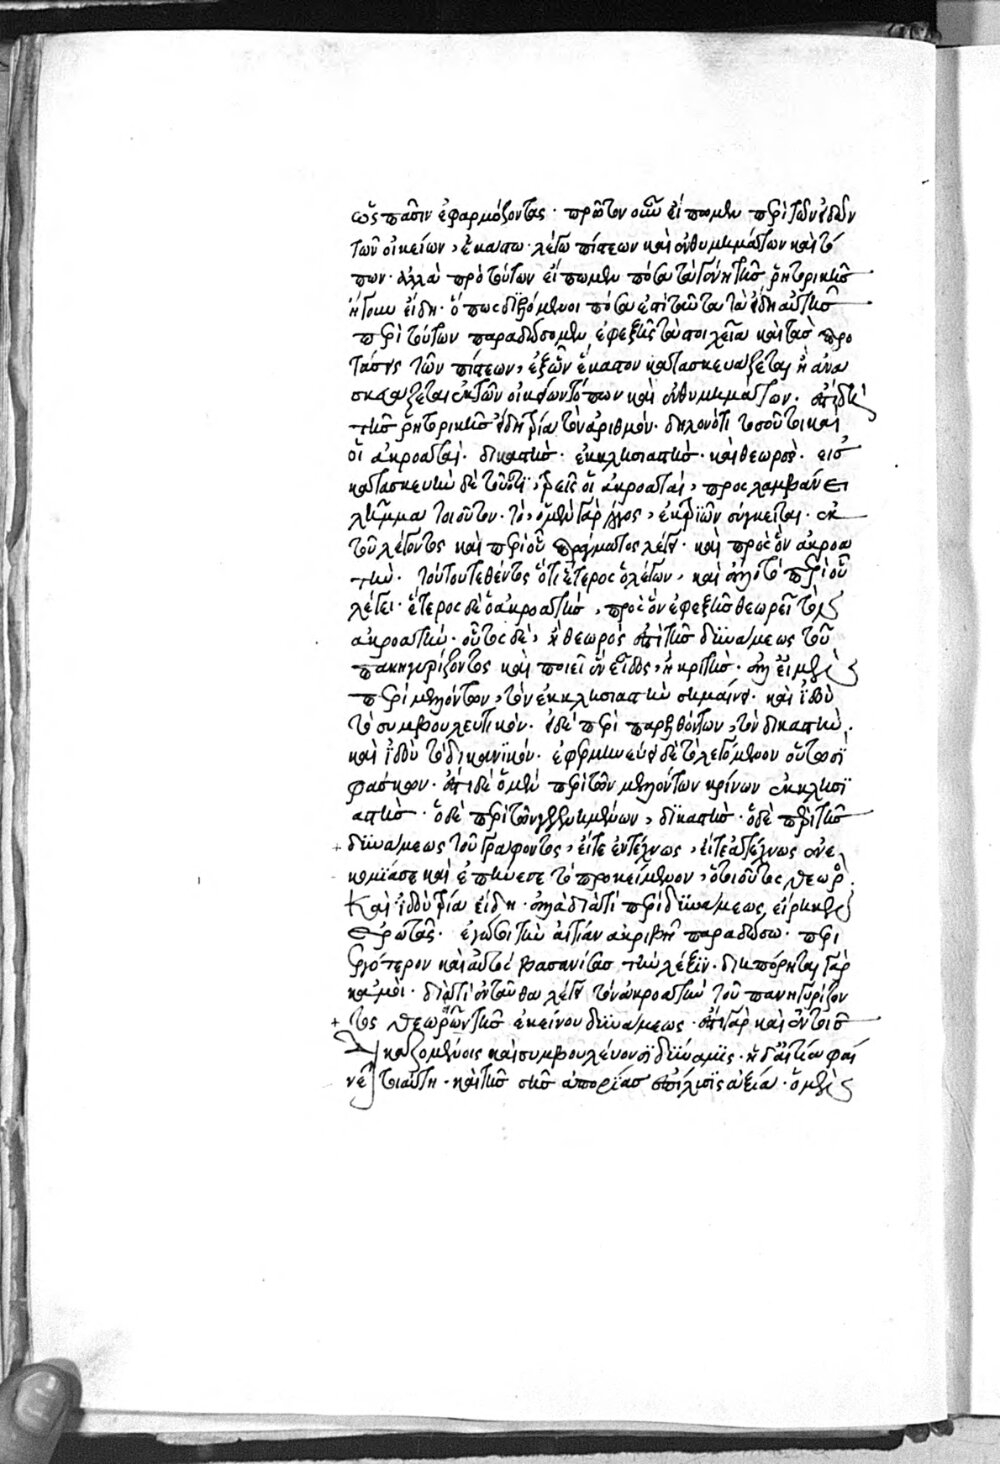 ὡς πᾶσιν ἐφαρμόζοντας· πρῶτον οὖν εἴπωμεν περὶ τῶν εἰδῶν
τῶν οἰκείων, ἑκάστω· λέγω πίστεων καὶ ἐνθυμημάτων καὶ τό
πων· ἀλλὰ πρὸ τούτων εἴπωμεν πόσα τὰ γένη τῆς ῥητορικῆς
ἤγουν εἴδη· ὅπως διϊξόμενοι πόσα ἐπὶ ταῦτα τὰ εἴδη αὐτῆς
περὶ τούτων παραδώσομεν ἐφεξῆς τὰ στοιχεῖα καὶ τὰς προ
τάσεις τῶν πίστεων, ἐξ ὧν ἕκαστον κατασκευάζεται ἢ ἀνα
σκευάζεται ἐκ τῶν οἰκείων τόπων καὶ ἐνθυμημάτων· ἐπεὶ δὲ
τῆς ῥητορικῆς εἴδη τρία τὸν ἀριθμόν· δηλονότι τοσοῦτοι καὶ
οἱ ἀκροαταί· δικαστής· ἐκκλησιαστής· καὶ θεωρός· εἰς
κατασκευὴν δὲ τοῦ ὅτι τρεῖς οἱ ἀκροαταί, προσλαμβάνει
λῆμμα τοιοῦτον· τό, ὁ μὲν γὰρ λόγος, ἐκ τριῶν σύγκειται· ἐκ
τοῦ λέγοντος καὶ περὶ οὗ πράγματος λέγει· καὶ πρὸς ὃν ἀκροα
τήν· τούτου τεθέντος ὅτι ἕτερος ὁ λέγων, καὶ ἄλλο τὸ περὶ οὗ
λέγει· ἕτερος δὲ ὁ ἀκροατής, πρὸς ὃν ἐφεξῆς θεωρεῖ τὸ
ἀκροατήν· οὗτος δέ, ἢ θεωρὸς ἐπὶ τῆς δυνάμεως τοῦ
πανηγυρίζοντος καὶ ποιεῖ ἓν εἶδος, ἢ κριτής· ἀλλ' εἰ μὲν
περὶ μελλόντων, τὸν ἐκκλησιαστὴν σημαίνει· καὶ ἰδοὺ
τὸ συμβουλευτικόν· εἰ δὲ περὶ παρελθόντων, τὸν δικαστὴν·
καὶ ἰδοὺ τὸ δικανικόν· ἐφερμηνεύει δὲ τὸ λεγόμενον οὕτωσὶ
φάσκων· ἔστι δὲ ὁ μὲν περὶ τῶν μελλόντων κρίνων ἐκκλησι
αστής· ὁ δὲ περὶ τῶν γεγενημένων, δικαστής· ὁ δὲ περὶ τῆς
δυνάμεως τοῦ γράφοντος, εἴτε ἐντέχνως, εἴτε ἀτέχνως ἐνε
κωμίασε καὶ ἐπῄνεσε τὸ προκείμενον, ὁ τοιοῦτος θεωρός·
Καὶ ἰδοὺ τρία εἴδη· ἀλλὰ διατί περὶ δυνάμεως εἴρηκεν
ἐρωτᾷς· ἐγώ σοι τὴν αἰτίαν ἀκριβῆ παραδώσω· περι
εργότερον καὶ αὐτὸς βασανίσας τὴν λέξιν· διηπόρηται γὰρ
κἀμοί· διατί ἐνταῦθα λέγει τὸν ἀκροατὴν τοῦ πανηγυρίζον
τος θεωρὸν τῆς ἐκείνου δυνάμεως· ἔστι γὰρ καὶ ἐν τοῖς
δικαζομένοις καὶ συμβουλεύουσι δύναμις· ἡ δ' αἰτία φαί
νεται αὕτη· καὶ τῆς σῆς ἀπορίας ἐπίλυσις ἀξία· ὁ μὲν